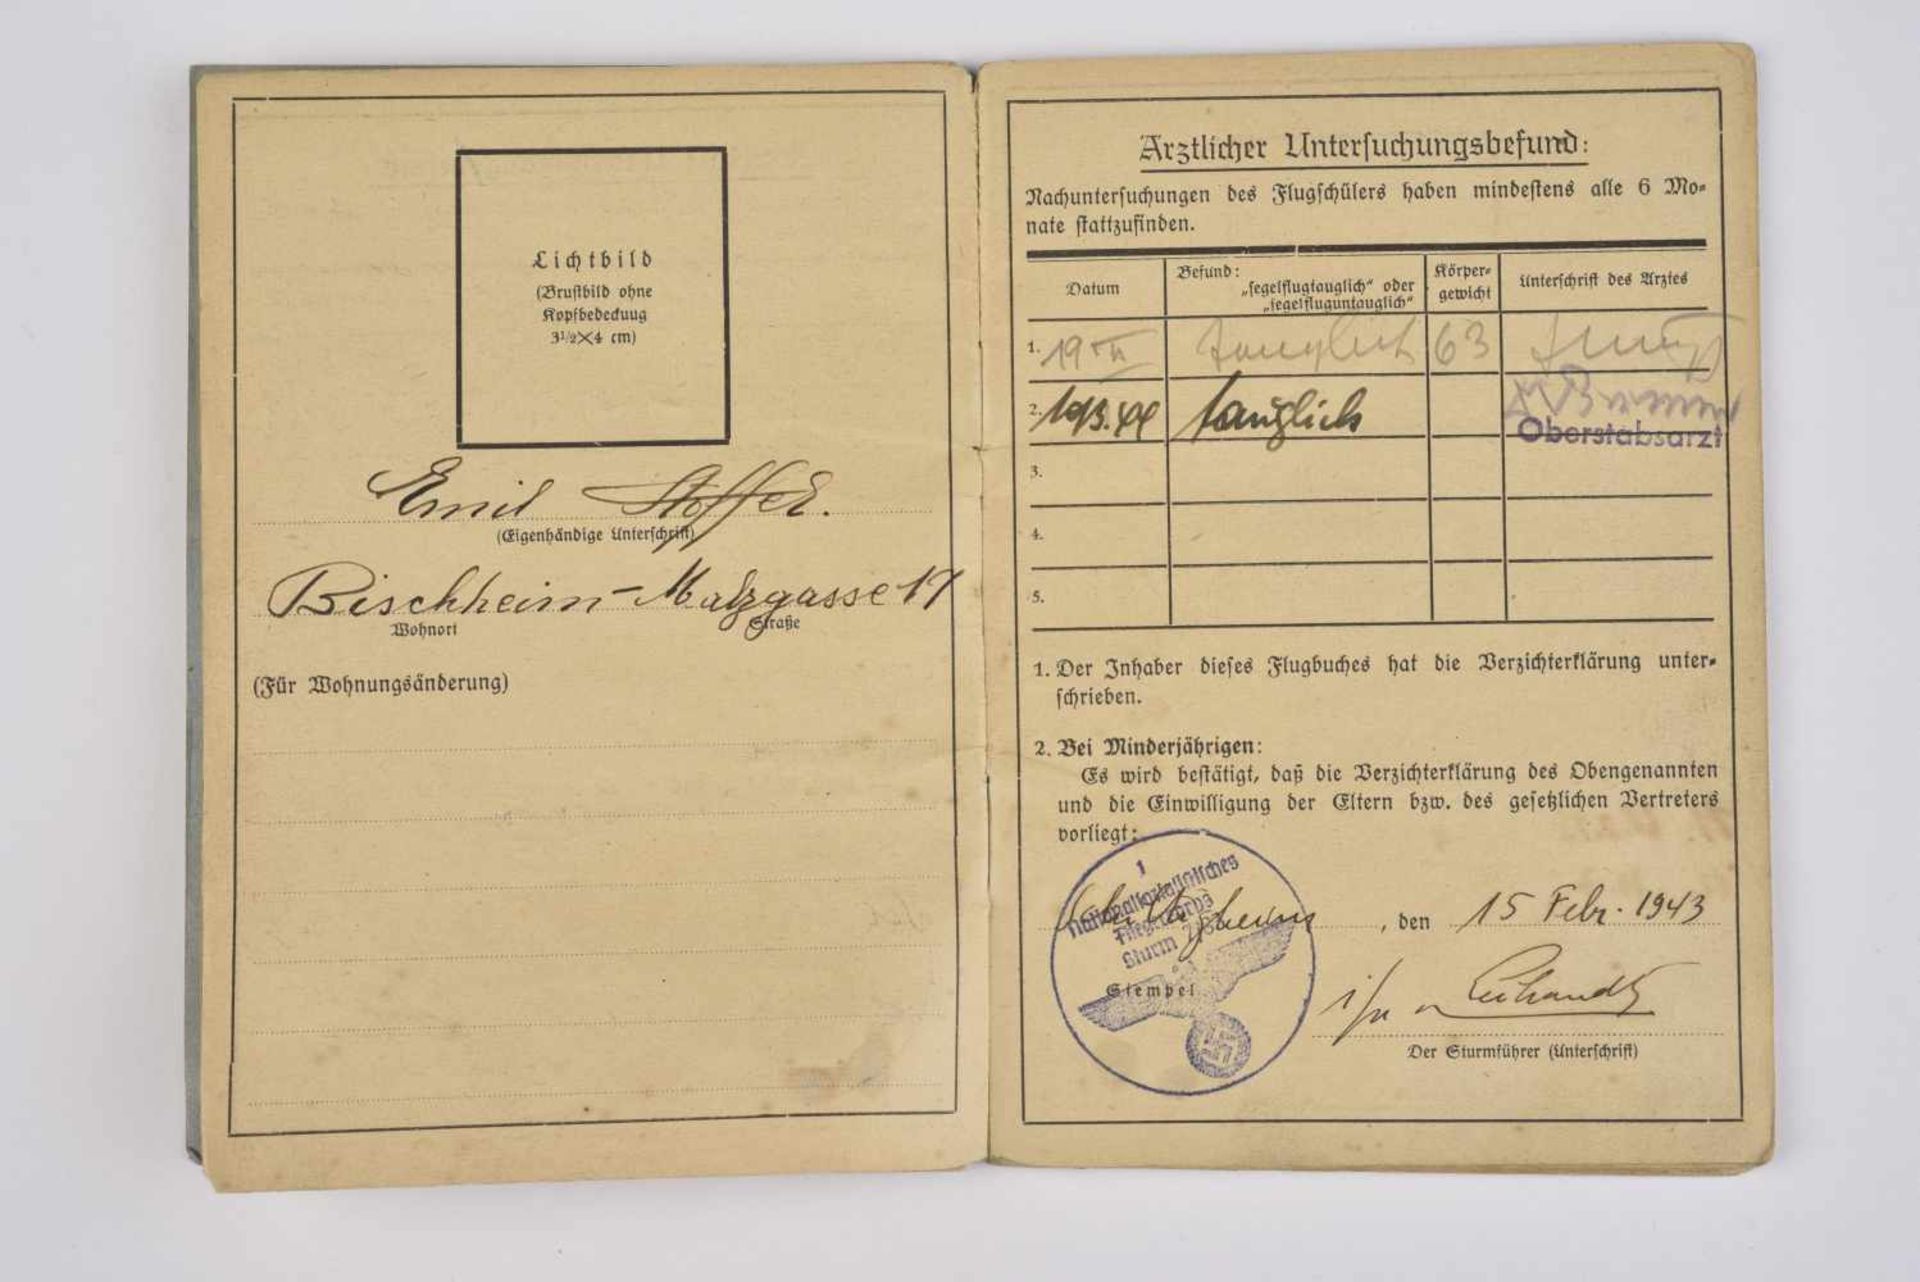 Lichtbild
(Brustbild ohne
Kopfbedeckuug
3½×4 cm)
Emil Stoffel.
(Eigenhändige Unterschrift)
Bischheim - Malzgasse 17
Wohnort Straße
(Für Wohnungsänderung)
Ärztlicher Untersuchungsbefund:
Nachuntersuchungen des Flugschülers haben mindestens alle 6 Mo-
nate stattzufinden.
Datum Befund: „segelflugtauglich“ oder „segelfluguntauglich“ Körper-gewicht Unterschrift des Arztes
1. 19 tauglich 63
2. 10/3.44 tauglich
Oberstabsarzt
3.
4.
5.
1. Der Inhaber dieses Flugbuches hat die Verzichterklärung unter-
schrieben.
2. Bei Minderjährigen:
Es wird bestätigt, daß die Verzichterklärung des Obengenannten
und die Einwilligung der Eltern bzw. des gesetzlichen Vertreters
vorliegt:
1
Nationalsozialistisches
Fliegerkorps
Sturm
, den 15 Febr. 1943
Stempel
Der Sturmführer (Unterschrift)